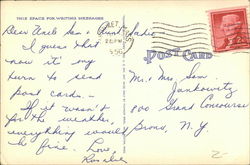 THIS SPACE FOR WRITING MESSAGES
Dear Uncle Sam & Aunt Sadie
I guess that
now it's my
turn to send
post cards.
If it wasn't
for the weather,
everything would
be fine. Love,
Rosalie
POST CARD
Mr. & Mrs. Sam
Jankowitz
800 Grand Concourse
Bronx, N.Y.
2¢